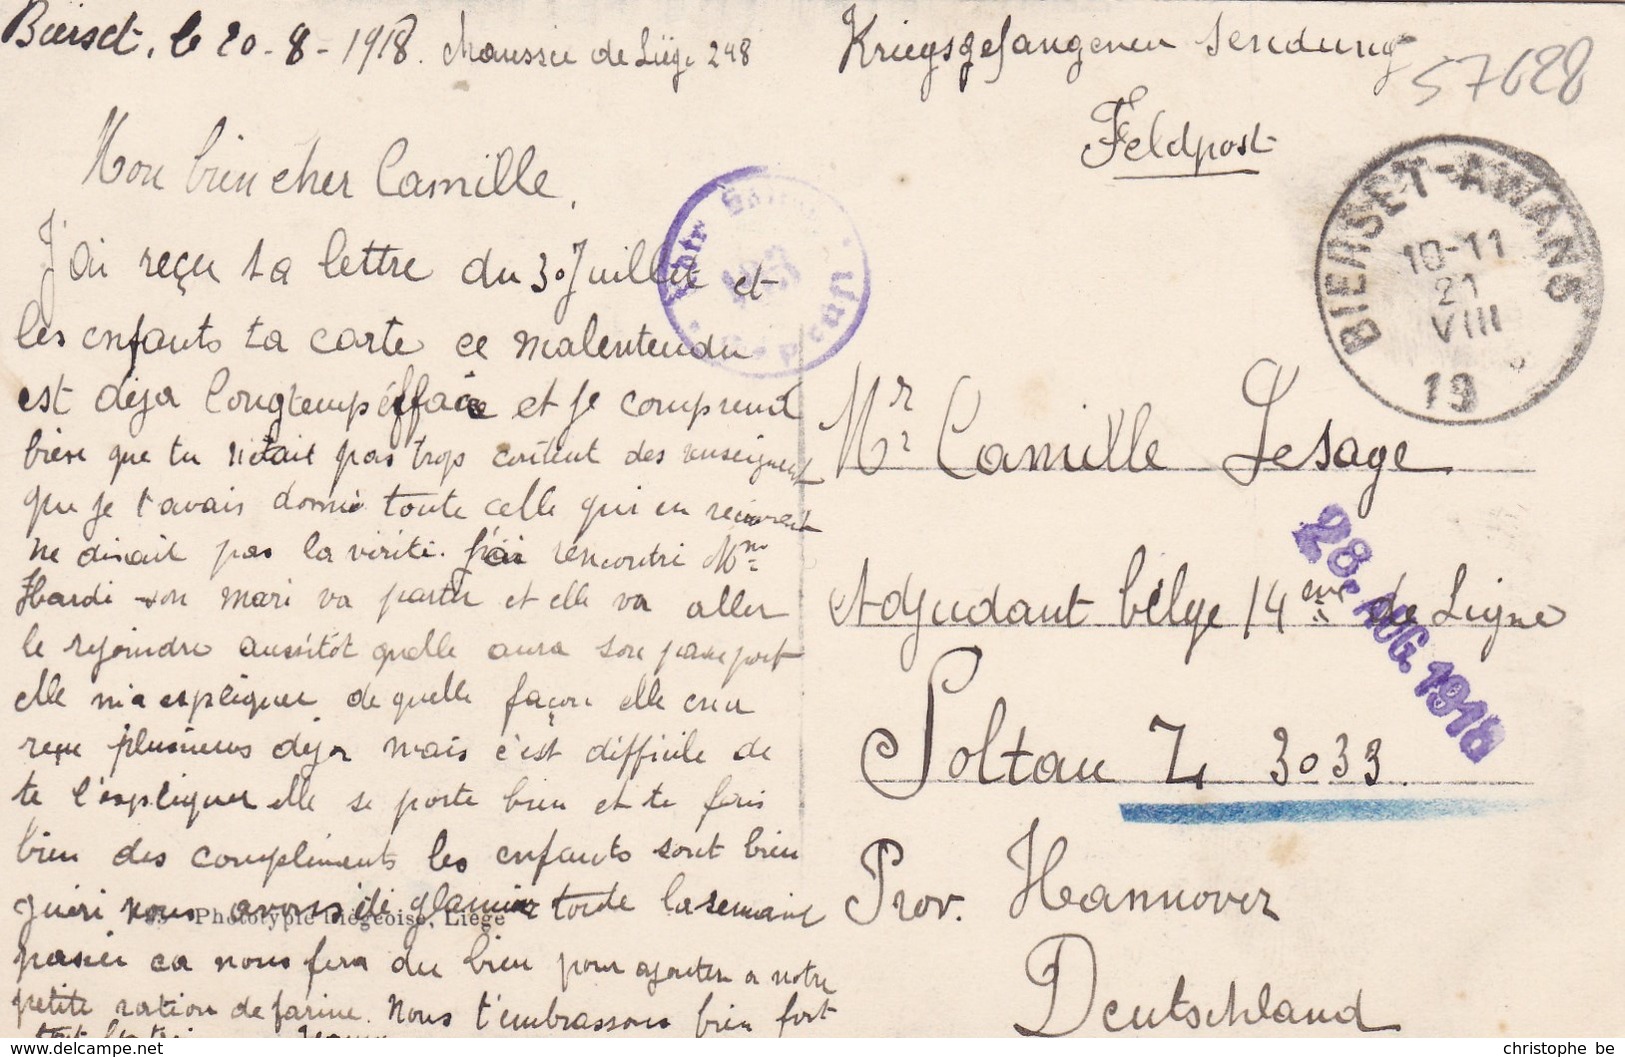 Bierset, le 20-8-1918. chaussée de Liège 248
Mon bien cher Camille,
J'ai reçu ta lettre du 30 Juillet et
les enfants ta carte ce malentendu
est déja longtemps éffacé et je comprend
bien que tu n'etait pas trop content des renseignement
que je t'avais donné toute celle qui en
ne disait pas la vérité. j'ai rencontré Mme
Hardi son mari va partir et elle va aller
le rejoindre aussitôt quelle aura son passeport
elle m'a expliquer de quelle façon elle en a
reçu plusieurs déja mais c'est difficile de
te l'expliquer elle se porte bien et te fais
bien des compliments les enfants sont bien
guéri nous avons été glanner toute la semaine
passée ca nous fera du bien pour ajouter a notre
petite ration de farine. Nous t'embrassons bien fort
Phototypie Liégeoise, Liége
Kriegsgefangenen Sendung
57628
Feldpost
BIERSET-AWANS
10-11
21
VIII
19
Mr Camille Lesage
Adjudant belge 14me de Ligne
28. AUG. 1918
Soltau Z 3033.
Prov. Hannover
Deutschland
christophe be